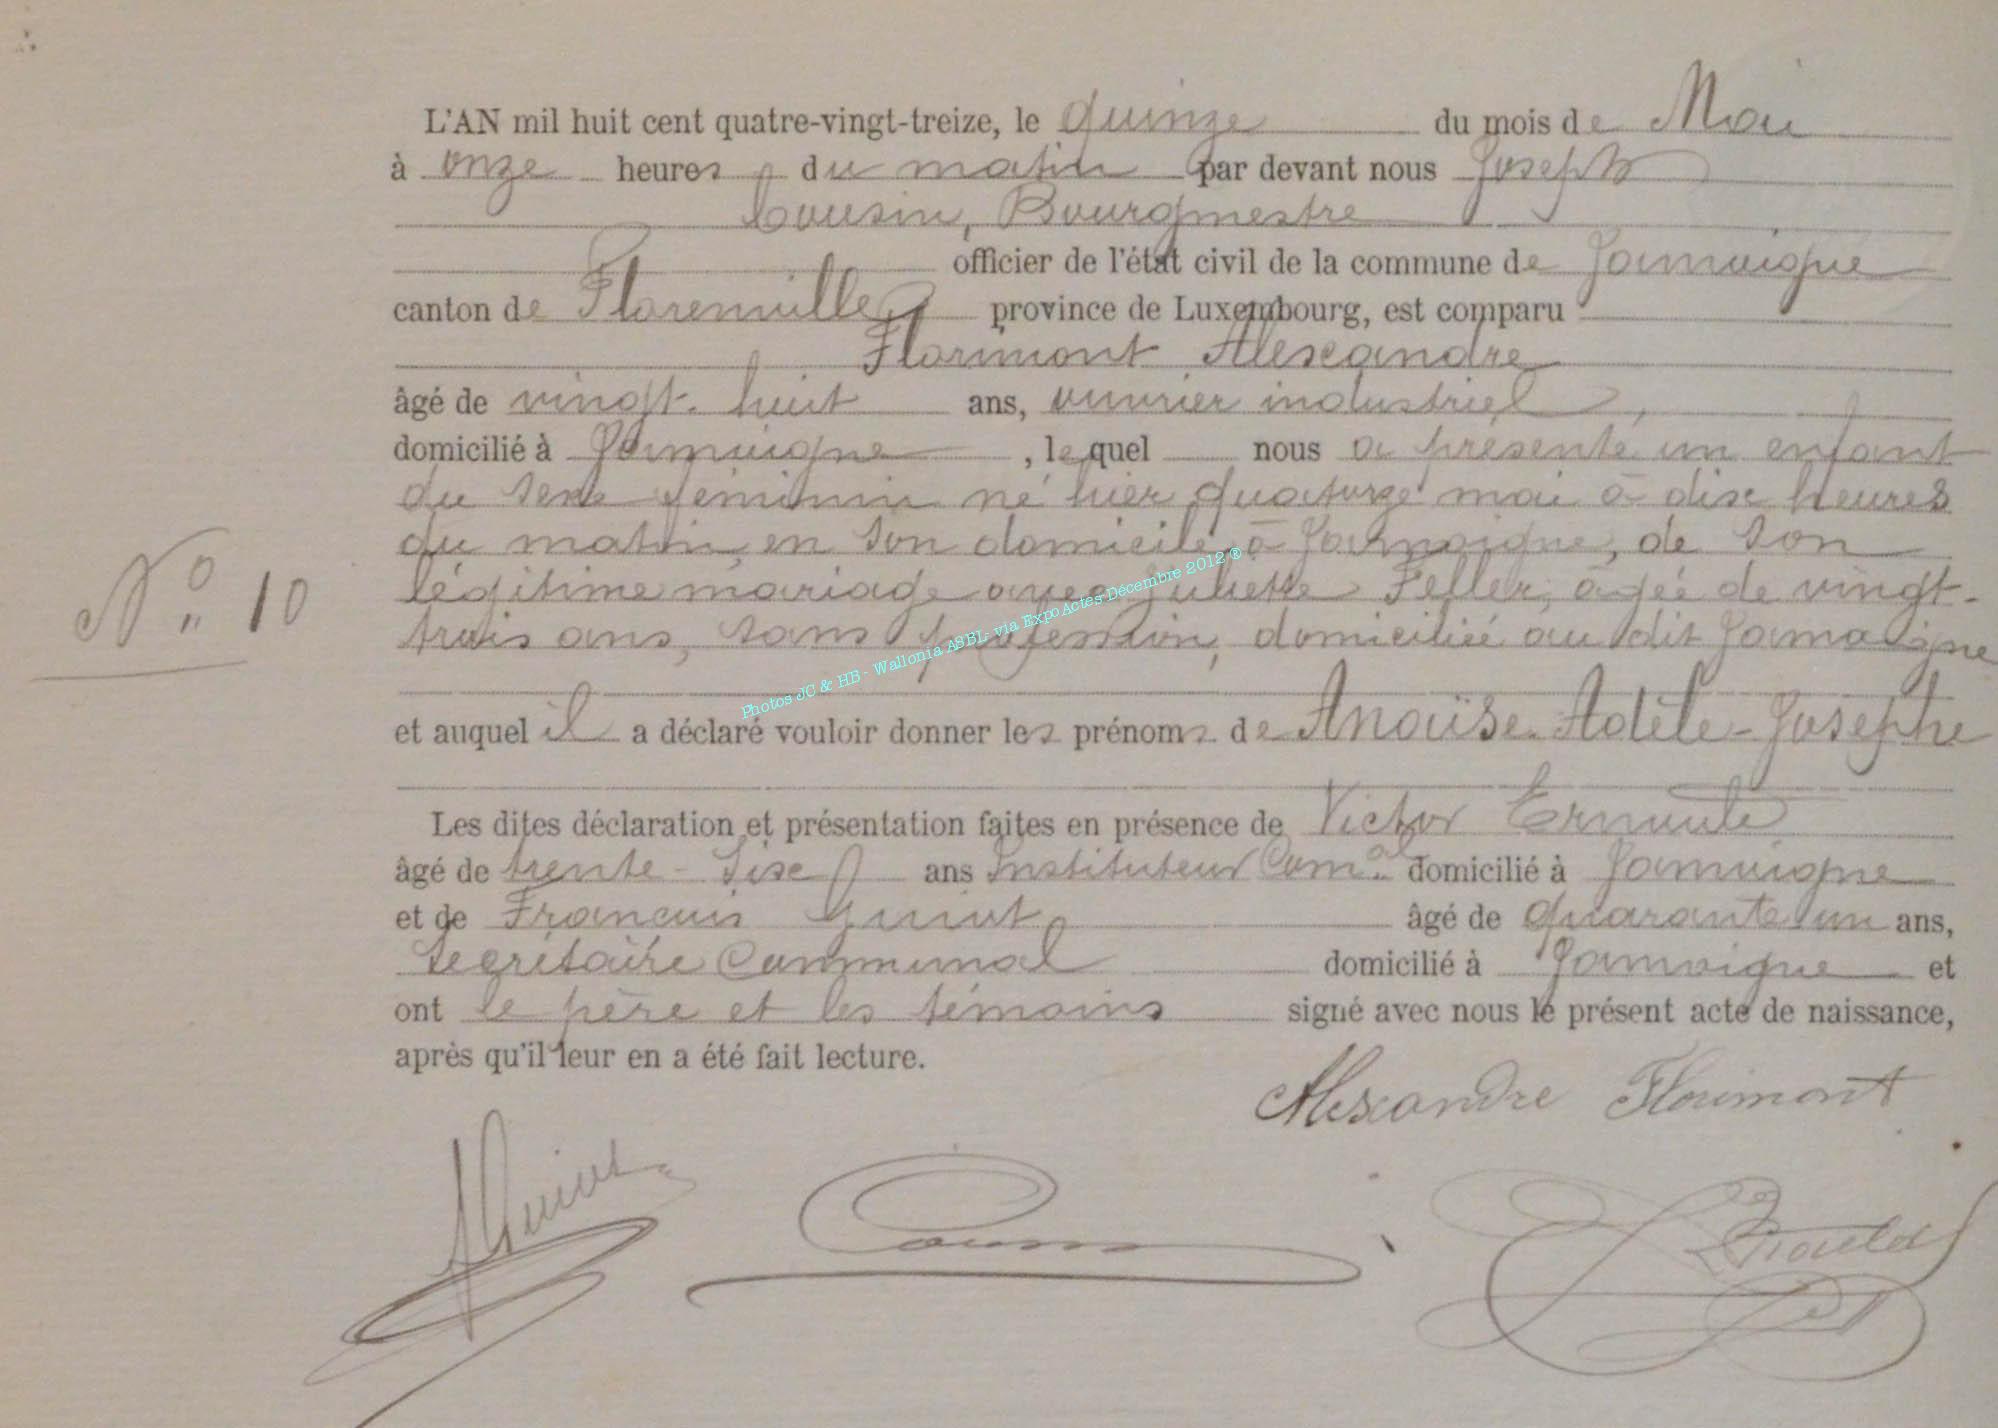 L'AN mil huit cent quatre-vingt-treize, le quinze du mois de Mai
à onze heures du matin par devant nous Joseph
Cousin, Bourgmestre
officier de l'état civil de la commune de Jamoigne
canton de Florenville province de Luxembourg, est comparu
Florimont Alexandre
âgé de vingt-huit ans, ouvrier industriel,
domicilié à Jamoigne, lequel nous a présenté un enfant
du sexe féminin né hier quatorze mai à dix heures
du matin, en son domicile à Jamoigne, de son
légitime mariage avec Juliette Feller, âgée de vingt-
trois ans, sans profession, domiciliée au dit Jamoigne
N° 10
et auquel il a déclaré vouloir donner les prénoms de Anaïse-Adèle-Josèphe
Les dites déclaration et présentation faites en présence de Victor
âgé de trente-six ans Instituteur Com.al domicilié à Jamoigne
et de François Guiot âgé de quarante un ans,
Secrétaire Communal domicilié à Jamoigne et
ont le père et les témoins signé avec nous le présent acte de naissance,
après qu'il leur en a été fait lecture.
Alexandre Florimont
Guiot Cousin
Photos JC & HB - Wallonia ASBL- via ExpoActes-Décembre 2012 ®